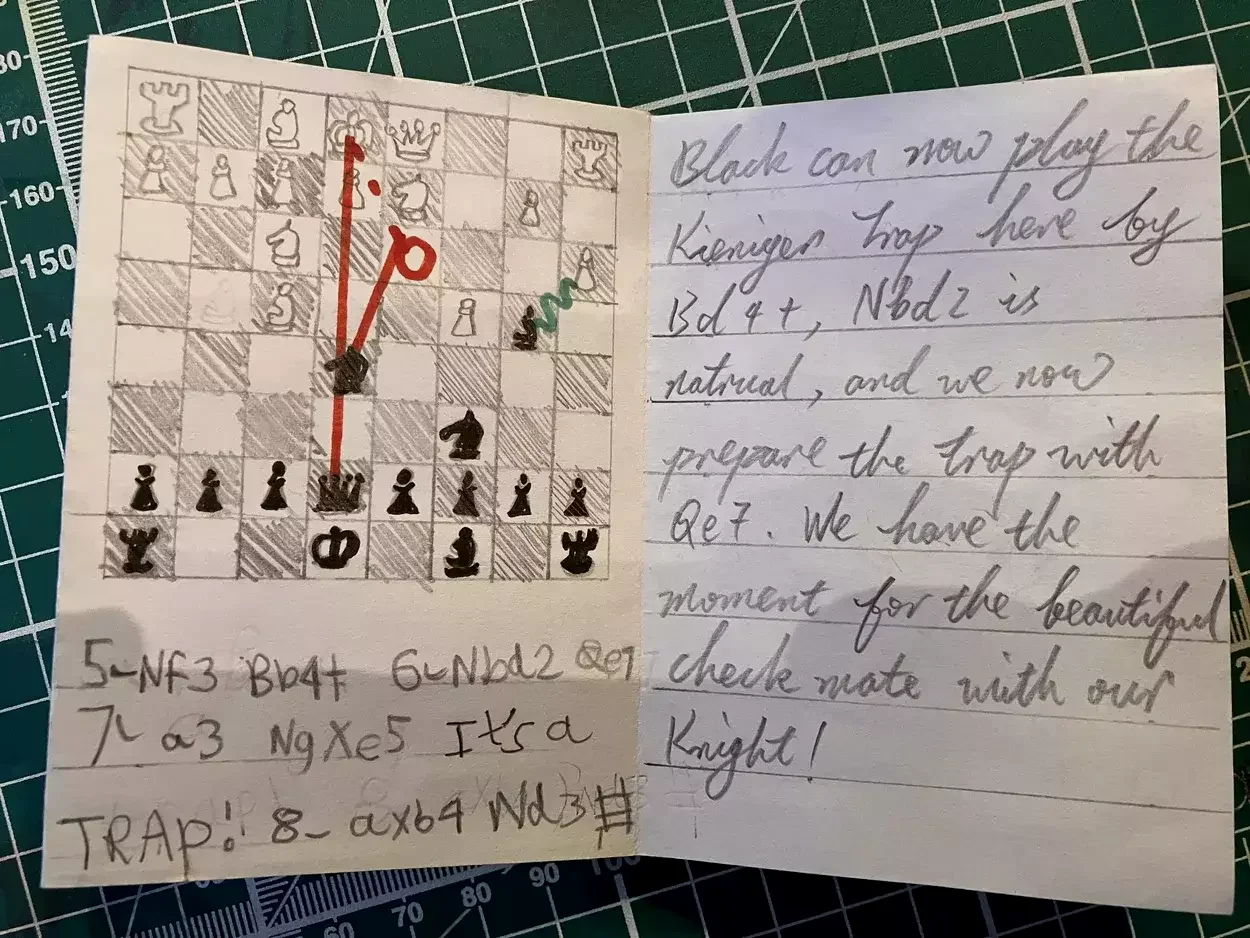 80
170
160
150
14
5~Nf3 Bb4+ 6~Nbd2 Qe7
7~ a3 NgXe5 It's a
TRAP! 8~ axb4 Nd3#
Black can now play the
Kieniger Trap here by
Bd4+, Nbd2 is
natrual, and we now
prepare the trap with
Qe7. We have the
moment for the beautiful
check mate with our
Knight!
60
70
80
90
100
2